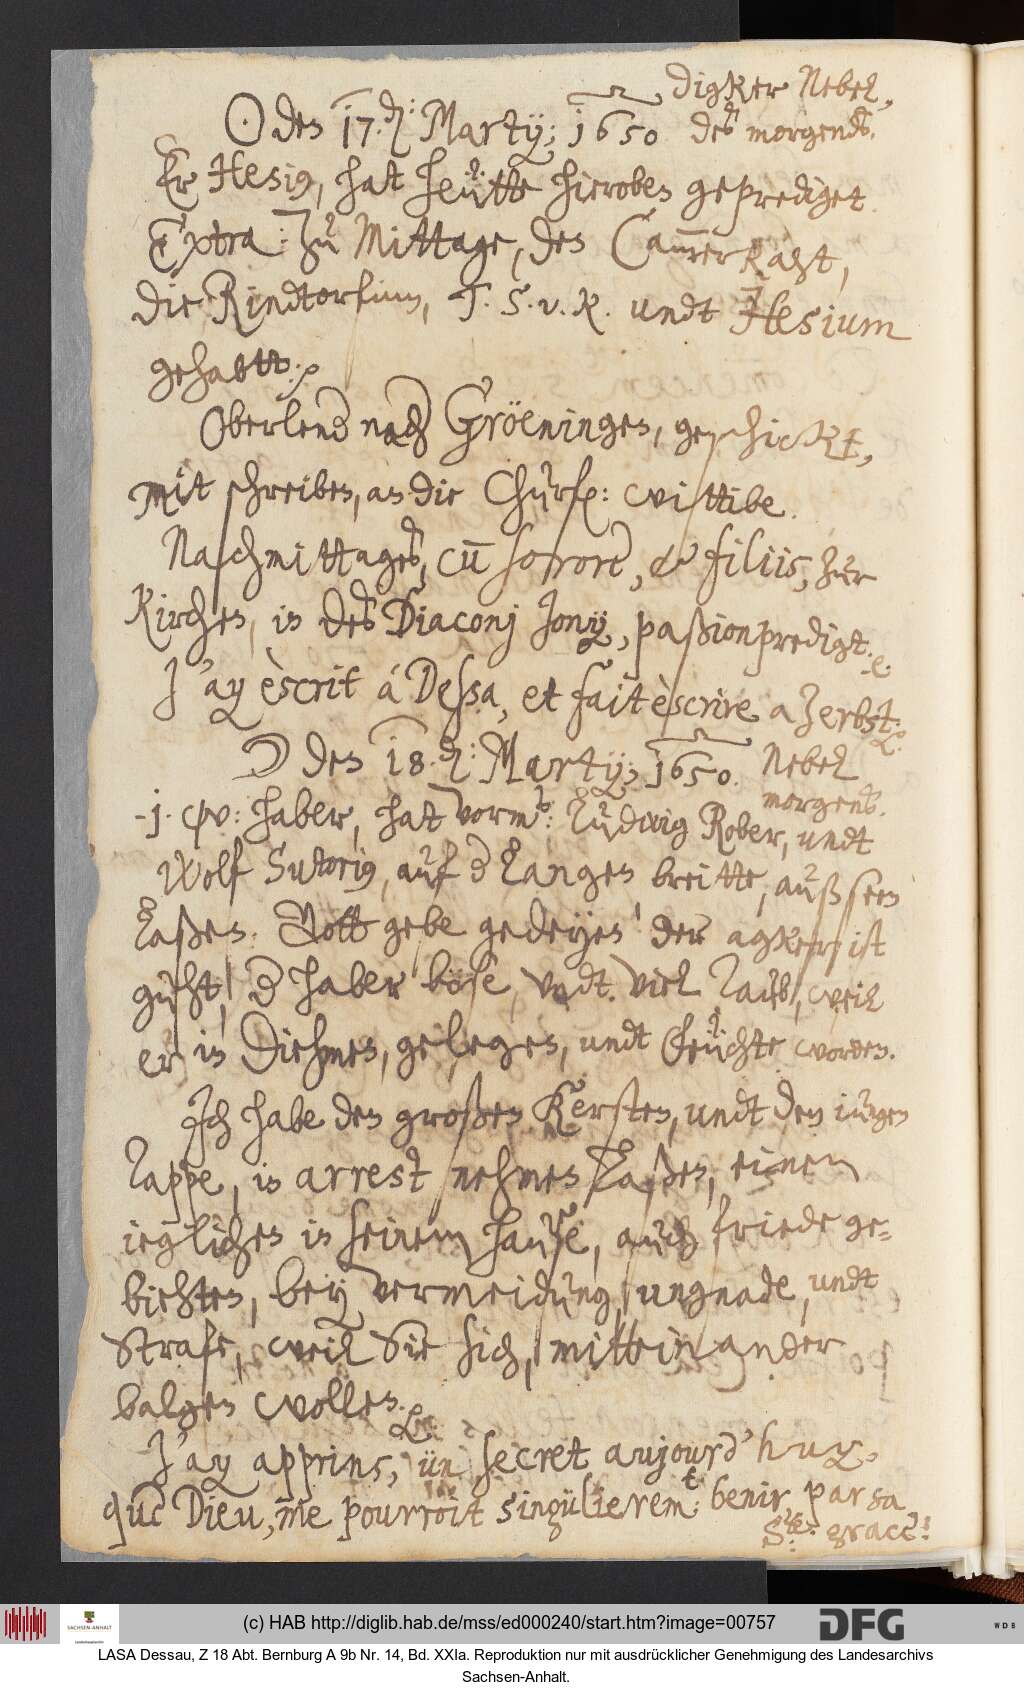 ☉ den 17. d: Martij; 1650 digker Nebel,
des morgends.
Er Hesius, hat heütte hieroben geprediget.
Extra: zu Mittage, den Cammerraht,
die Rindtorfinn, T. S. v. R. undt Hesium
gehabtt. ⁊
Oberlend nach Gröeningen, geschickt,
mit schreiben, an die Churf: wittibe.
Nachmittages, cum sorore, & filiis, zur
Kirchen, in des Diaconj Jonij, paßionpredigt. ⁊
J'ay èscrit á Dessa, et fait èscrire a Zerbst. ⁊
☽ den 18. d: Martij; 1650. Nebel
morgends.
-j. w: haber, hat vorm: Ludwig Rober, undt
Wolf Sutorius, auf der langen breitte, außseen
laßen. Gott gebe gedeyen! der agker ist
guht, der haber böse, undt viel taub, weil
er in Diehmen, gelegen, undt feüchte worden.
Ich habe den großen Kersten, undt den jungen
Tappe, in arrest nehmen laßen, einem
ieglichen in seinem hause, auch friede ge-
biehten, bey vermeidung, ungnade, undt
Strafe, weil Sie sich, mitteinander
balgen wollen. ⁊
J'ay apprins, ün secret aujourd'huy,
que Dieu, me pourroit singülierem.t benir, par sa
S.te grace!
(c) HAB http://diglib.hab.de/mss/ed000240/start.htm?image=00757
SACHSEN-ANHALT
DFG
WDB
LASA Dessau, Z 18 Abt. Bernburg A 9b Nr. 14, Bd. XXIa. Reproduktion nur mit ausdrücklicher Genehmigung des Landesarchivs
Sachsen-Anhalt.